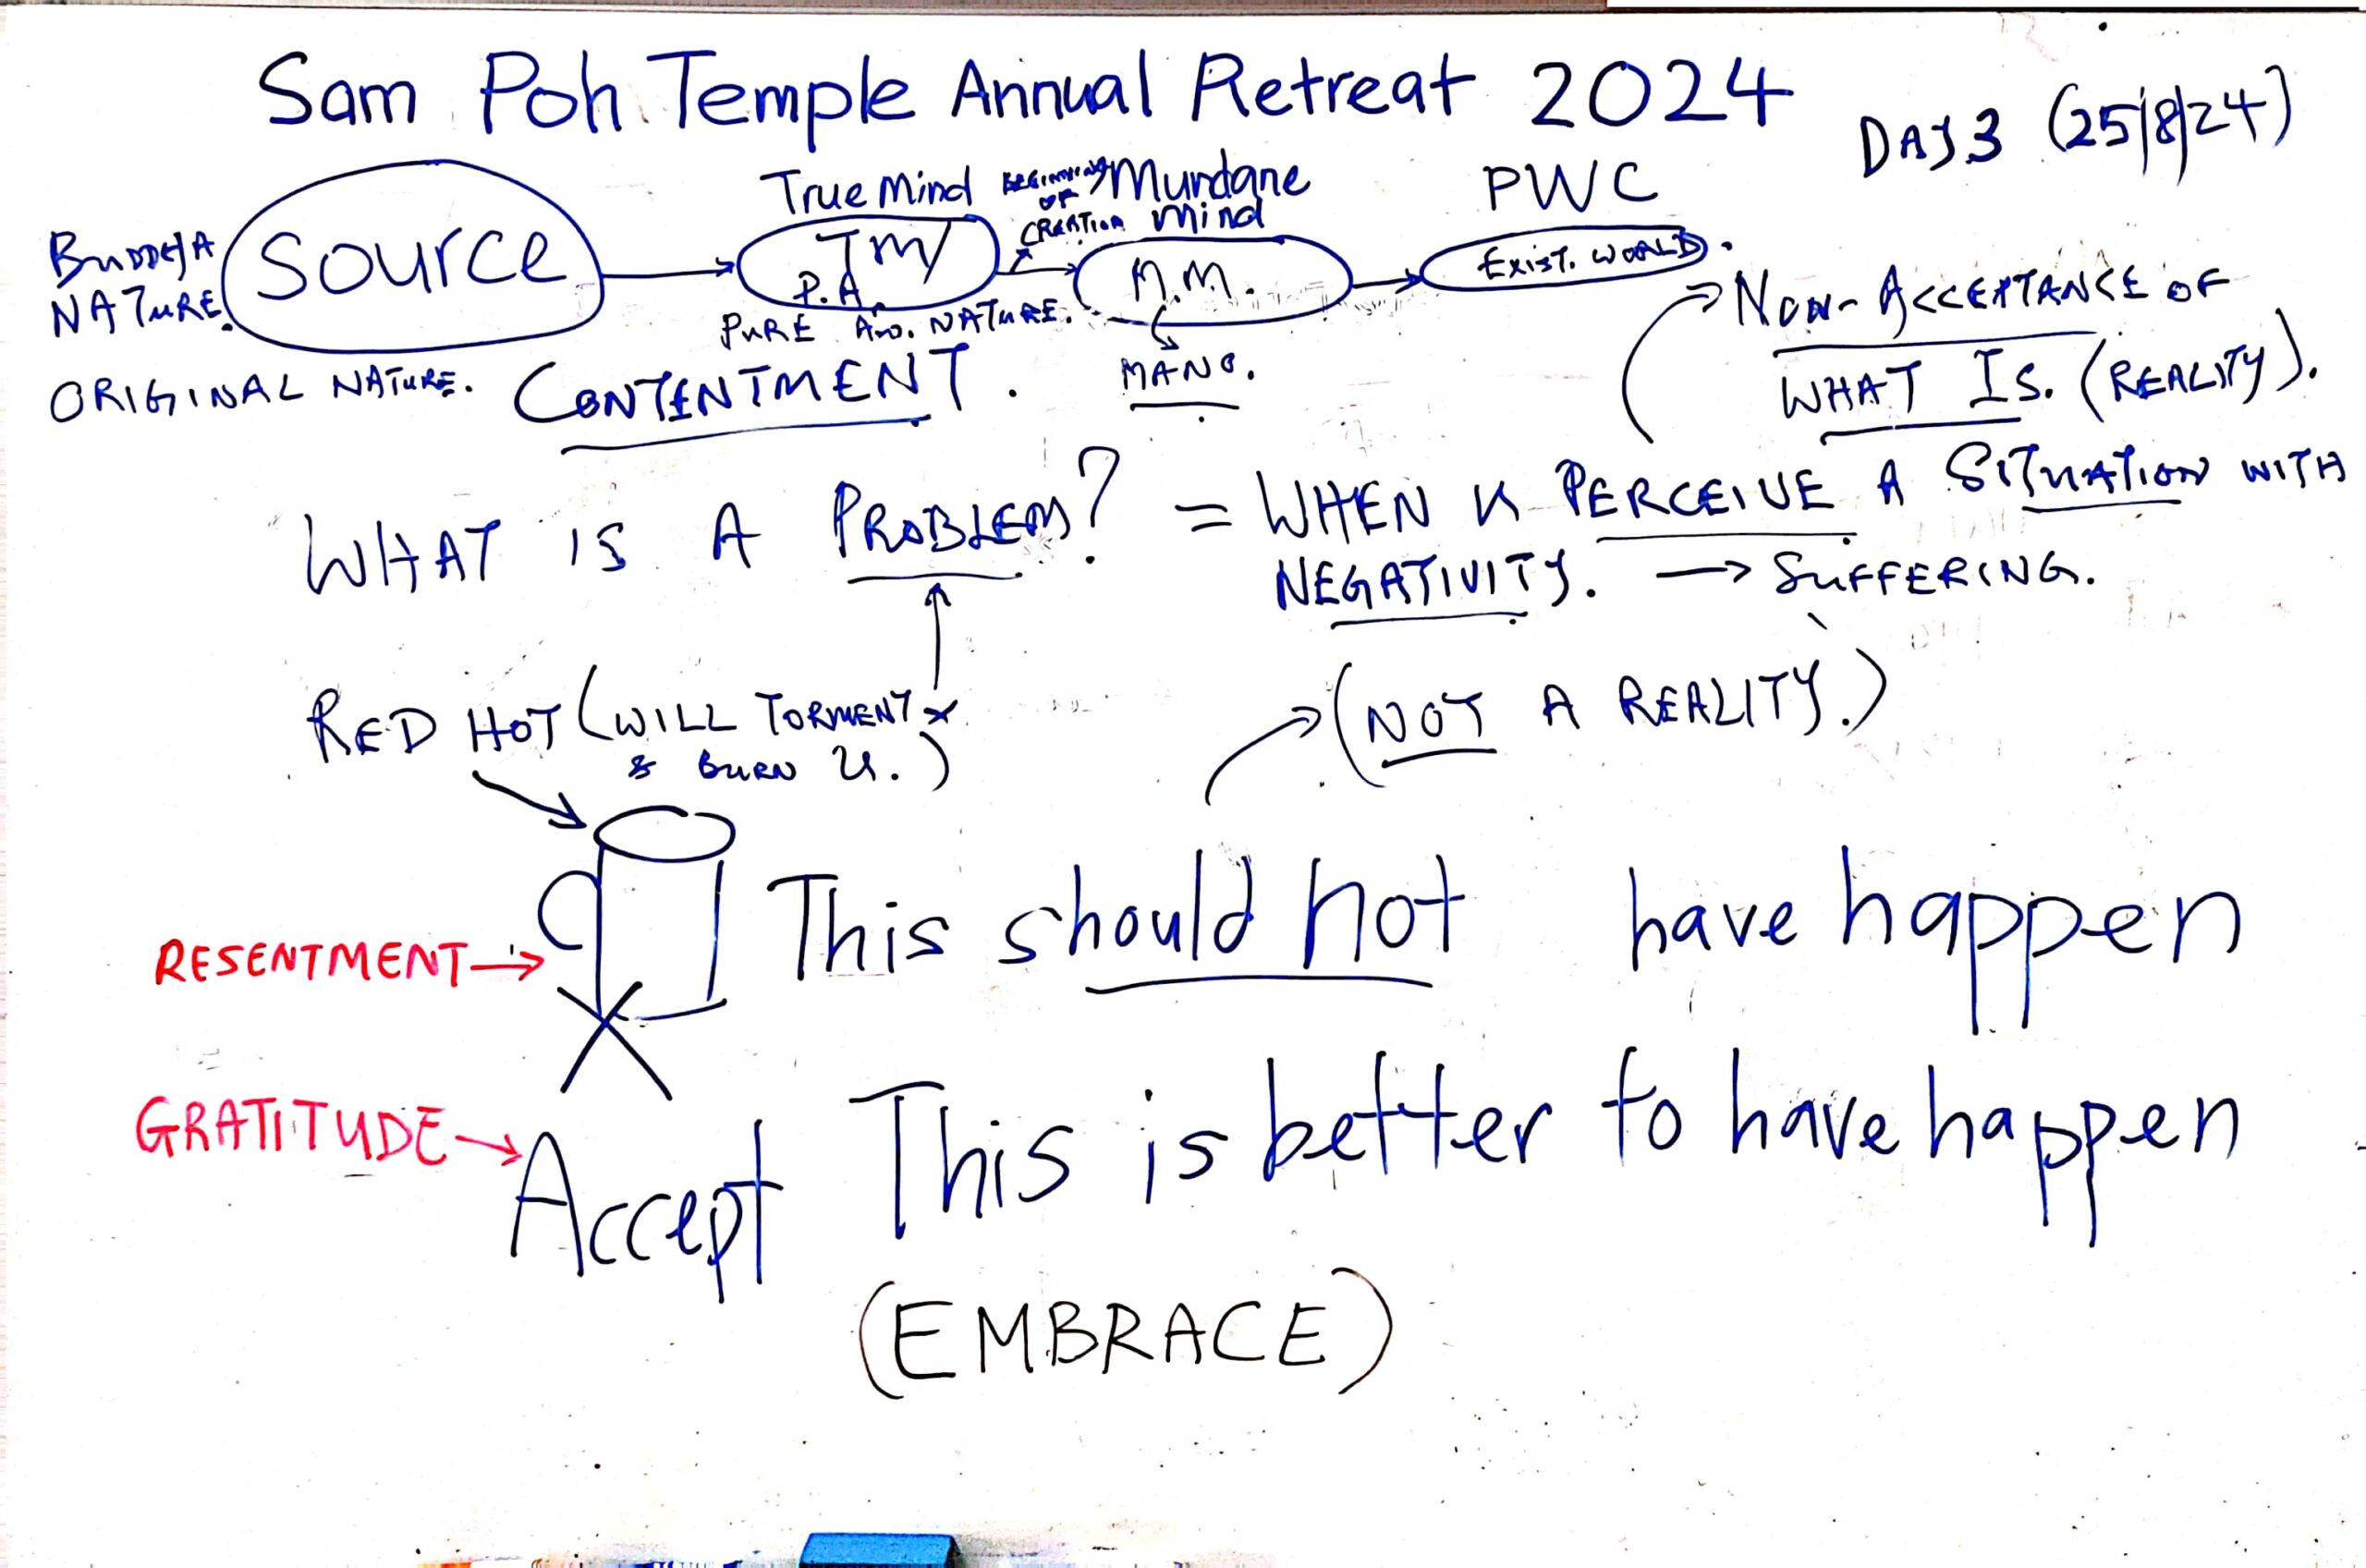 Sam Poh Temple Annual Retreat 2024
DAY 3 (25/8/24)
True Mind
BEGINNING OF CREATION
Mundane Mind
PWC
BUDDHA NATURE.
Source
TM/
P.A.
M.M.
EXIST. WORLD.
PURE AW. NATURE.
MANO.
ORIGINAL NATURE.
CONTENTMENT.
NON-ACCEPTANCE OF
WHAT IS. (REALITY).
WHAT IS A PROBLEM? = WHEN U PERCEIVE A SITUATION WITH
NEGATIVITY. → SUFFERING.
RED HOT (WILL TORMENT
& BURN U.)
(NOT A REALITY.)
RESENTMENT →
This should not have happen
GRATITUDE →
Accept This is better to have happen
(EMBRACE)